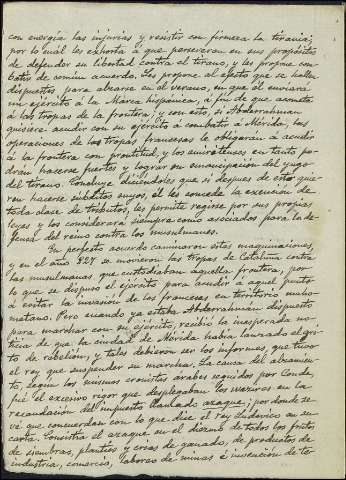 con energía las injurias y resistir con firmeza la tiranía;
por lo cuál les exhorta á que perseveren en sus propósitos
de defender su libertad contra el tirano, y les propone com-
batir de comun acuerdo. Les propone al efecto que se hallen
dispuestos para alzarse en el verano, en que él enviará
un ejército á la Marca hispánica, á fin de que acometa
á las tropas de la frontera; y con esto, si Abderrahman
quisiera acudir con su ejército á combatir á Mérida, las
operaciones de las tropas francesas le obligarán á acudir
á la frontera con prontitud, y los emeritenses en tanto po-
drán hacerse fuertes y lograr su emancipación del yugo
del tirano. Concluye diciéndoles que si despues de esto quie-
ren hacerse súbditos suyos, él les concede la exención de
toda clase de tributos, les permite regirse por sus propias
leyes y los considerará siempre como asociados para la de-
fensa del reino contra los musulmanes.
En perfecto acuerdo caminaron estas maquinaciones,
y en el año 827 se movieron las tropas de Cataluña contra
las musulmanas que custodiaban aquella frontera, por
lo que se dispuso el ejército para acudir á aquel punto
á evitar la invasión de los franceses en territorio maho-
metano. Pero cuando ya estaba Abderrahman dispuesto
para marchar con su ejército, recibió la inesperada no-
ticia de que la ciudad de Mérida había lanzado el gri-
to de rebelión, y tales debieron ser los informes, que tuvo
el rey que suspender su marcha. La causa del alzamien-
to, según los mismos cronistas árabes seguidos por Conde,
fué el excesivo rigor que desplegaban los wazires en la
recaudación del impuesto llamado azaque; por donde se
vé que concuerdan con lo que dice el rey Ludovico en su
carta. Consistía el azaque en el diezmo de todos los frutos
de siembras, plantíos y crías de ganado, de productos de
industria, comercio, labores de minas é invención de te-